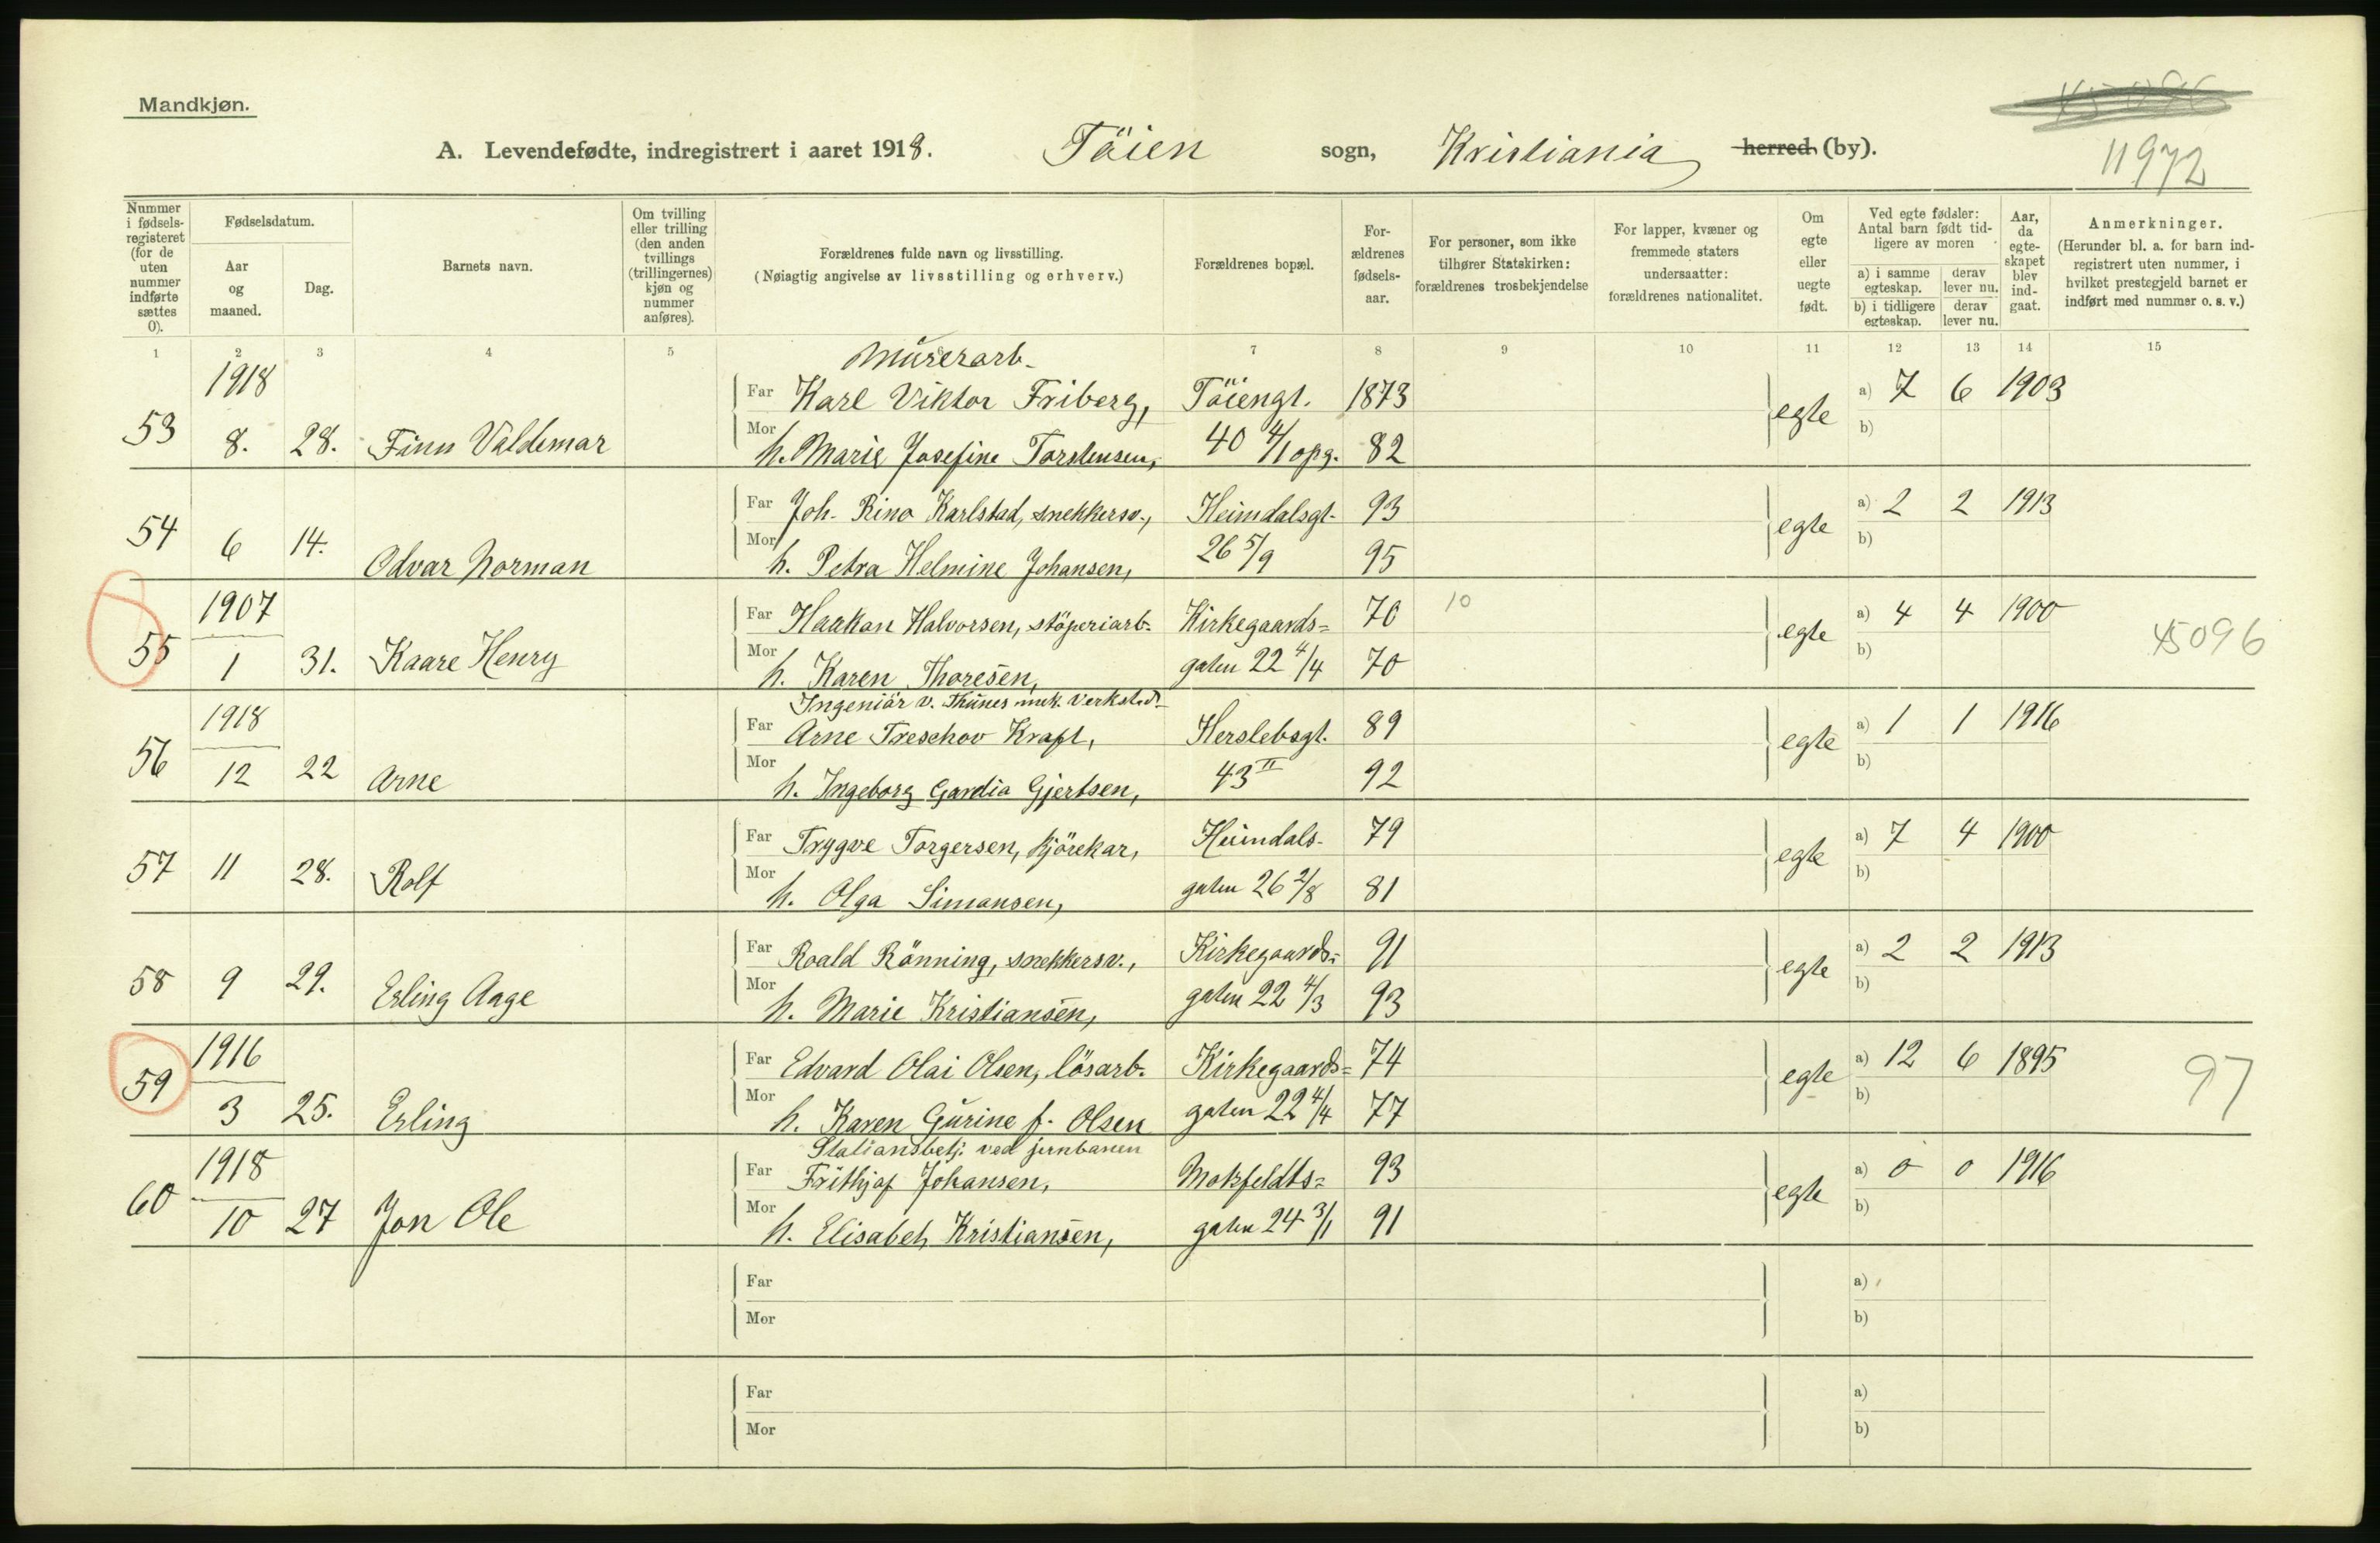 Mandkjøn.
A. Levendefødte, indregistrert i aaret 1918. Töien sogn, Kristiania herred (by).
11972
Nummer i fødsels-registeret (for de uten nummer indførte sættes 0).
Fødselsdatum.
Aar og maaned.
Dag.
Barnets navn.
Om tvilling eller trilling (den anden tvillings (trillingernes) kjøn og nummer anføres).
Forældrenes fulde navn og livsstilling.
(Nøiagtig angivelse av livsstilling og erhverv.)
Forældrenes bopæl.
For-ældrenes fødsels-aar.
For personer, som ikke tilhører Statskirken: forældrenes trosbekjendelse
For lapper, kvæner og fremmede staters undersaatter: forældrenes nationalitet.
Om egte eller uegte født.
Ved egte fødsler: Antal barn født tid-ligere av moren
a) i samme egteskap.
derav lever nu.
b) i tidligere egteskap.
derav lever nu.
Aar, da egte-skapet blev ind-gaat.
Anmerkninger.
(Herunder bl. a. for barn ind-registrert uten nummer, i hvilket prestegjeld barnet er indført med nummer o. s. v.)
1 2 3 4 5 7 8 9 10 11 12 13 14 15
Murerarb.
1918
Far Karl Viktor Friberg, Töiengt. 1873 a) 7 6 1903
53 8. 28. Finn Valdemar egte
Mor h. Marie Josefine Torstensen, 40 4/1 opg. 82 b)
Far Joh. Rino Karlstad, snekkersv., Heimdalsgt. 93 a) 2 2 1913
54 6 14. Odvar Norman egte
Mor h. Petra Helmine Johansen, 26 5/9 95 b)
1907
Far Haakon Halvorsen, stöperiarb. Kirkegaards= 70 10 a) 4 4 1900
55 1 31. Kaare Henry egte 45096
Mor h. Karen Thoresen, gaten 22 4/4 70 b)
Ingeniör v. Thunes mek. Verksted.
1918
Far Arne Treschov Kraft, Herslebsgt. 89 a) 1 1 1916
56 12 22 Arne egte
Mor h. Ingeborg Gardia Gjertsen, 43 II 92 b)
Far Trygve Torgersen, kjörekar, Heimdals- 79 a) 7 4 1900
57 11 28. Rolf egte
Mor h. Olga Simonsen, gaten 26 2/8 81 b)
Far Roald Rönning, snekkersv., Kirkegaards= 91 a) 2 2 1913
58 9 29. Erling Aage egte
Mor h. Marie Kristiansen, gaten 22 4/3 93 b)
1916
Far Edvard Olai Olsen, lösarb. Kirkegaards= 74 a) 12 6 1895
59 3 25. Erling egte 97
Mor h. Karen Gurine f. Olsen gaten 22 4/4 77 b)
Stationsbetj. ved jernbanen
1918
Far Frithjof Johansen, Motzfeldts= 93 a) 0 0 1916
60 10 27 Jon Ole egte
Mor h. Elisabeth Kristiansen, gaten 24 3/1 91 b)
Far a)
Mor b)
Far a)
Mor b)